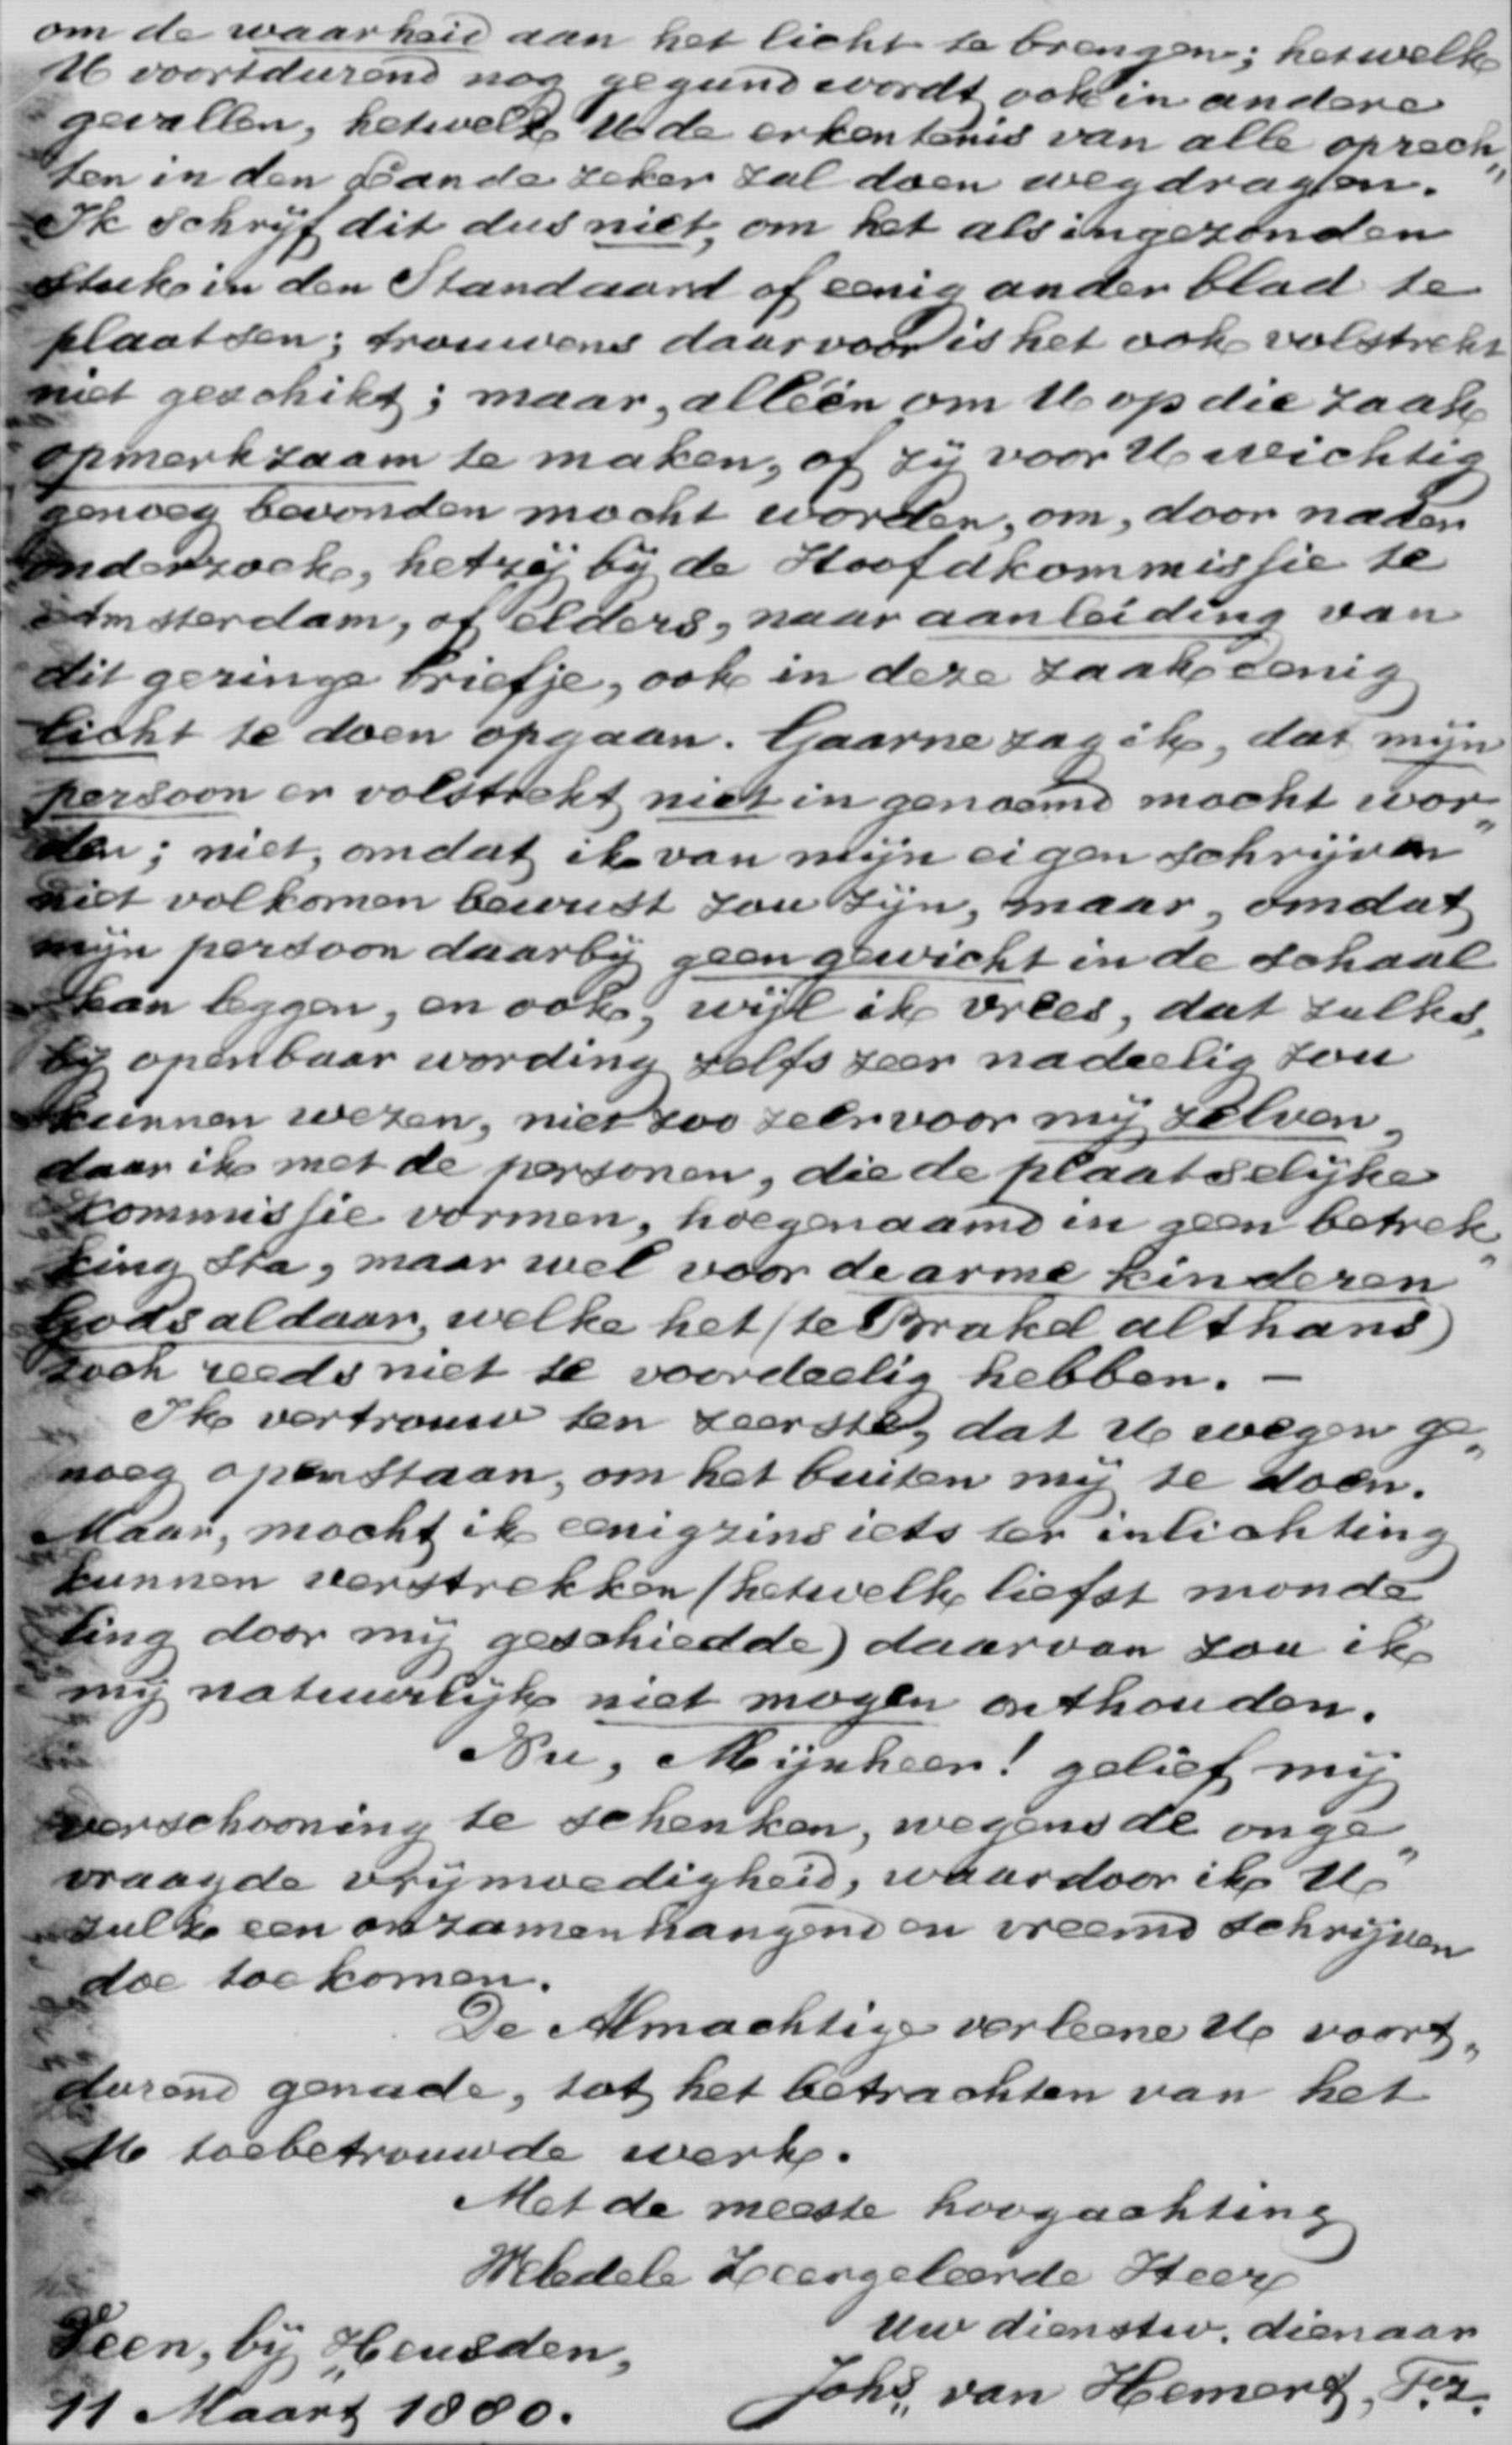 om de waarheid aan het licht te brengen; hetwelk
U voortdurend nog gegund wordt ook in andere
gevallen, hetwelk U de erkentenis van alle oprech„
ten in den Lande zeker zal doen wegdragen.
Ik schrijf dit dus niet, om het als ingezonden
stuk in den Standaard of eenig ander blad te
plaatsen; trouwens daarvoor is het ook volstrekt
niet geschikt; maar, alléén om U op die zaak
opmerkzaam te maken, of zij voor U wichtig
genoeg bevonden mocht worden, om, door nader
onderzoek, hetzij bij de Hoofdkommissie te
Amsterdam, of elders, naar aanleiding van
dit geringe briefje, ook in deze zaak eenig
licht te doen opgaan. Gaarne zag ik, dat mijn
persoon er volstrekt niet in genoemd mocht wor„
den; niet, omdat ik van mijn eigen schrijven
niet volkomen bewust zou zijn, maar, omdat
mijn persoon daarbij geen gewicht in de schaal
kan leggen, en ook, wijl ik vrees, dat zulks,
bij openbaar wording zelfs zeer nadeelig zou
kunnen wezen, niet zoo zeer voor mij zelven,
daar ik met de personen, die de plaatselijke
kommissie vormen, hoegenaamd in geen betrek„
king sta, maar wel voor de arme kinderen
Gods aldaar, welke het (te Brakel althans)
toch reeds niet te voordeelig hebben. —
Ik vertrouw ten zeerste, dat U wegen ge„
noeg openstaan, om het buiten mij te doen.
Maar, mocht ik eenigzins iets ter inlichting
kunnen verstrekken (hetwelk liefst monde„
ling door mij geschiedde) daarvan zou ik
mij natuurlijk niet mogen onthouden.
Nu, Mijnheer! gelief mij
verschooning te schenken, wegens de onge„
vraagde vrijmoedigheid, waardoor ik U
zulk een onzamenhangend en vreemd schrijven
doe toekomen.
De Almachtige verleene U voort„
durend genade, tot het betrachten van het
U toebetrouwde werk.
Met de meeste hoogachting
WelEdele Zeergeleerde Heer
Uw dienstw. dienaar
Veen, bij Heusden,
Johs„ van Hemert, Fz.
11 Maart 1880.